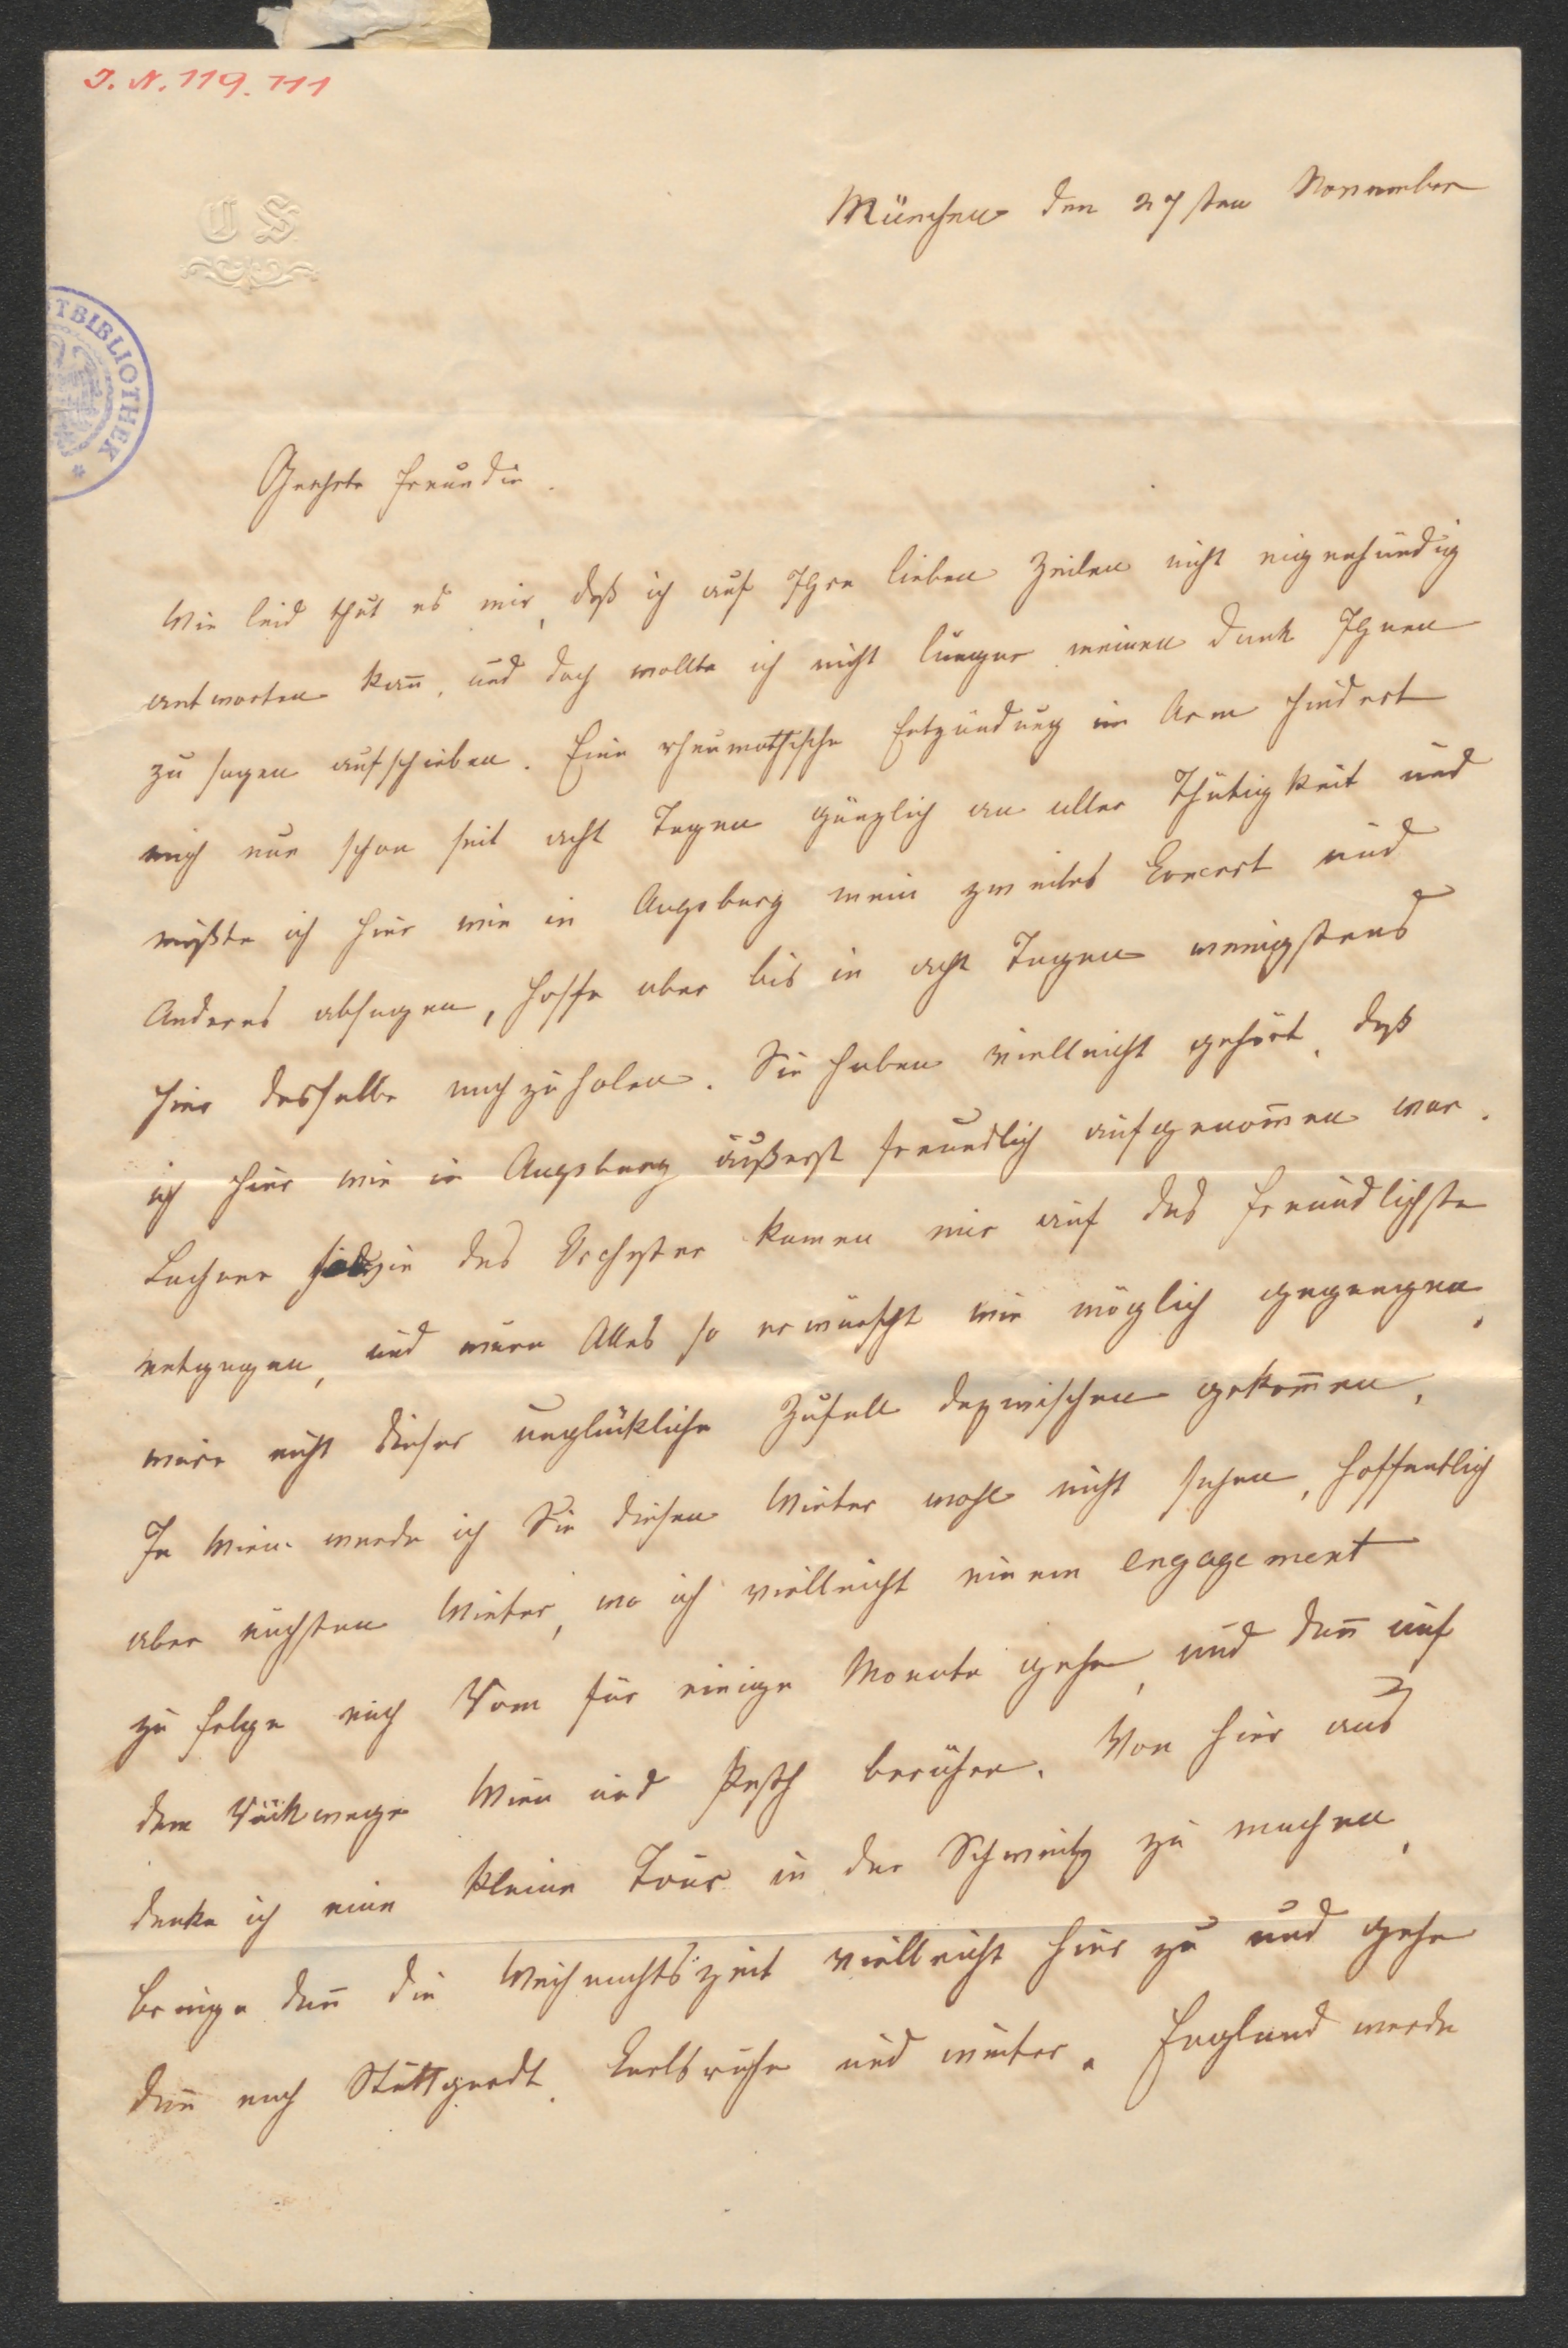 J. N. 119.711
C S
TBIBLIOTHEK
München den 27sten November
Geehrte Freundin.
Wie leid thut es mir, daß ich auf Ihre lieben Zeilen nicht eigenhändig
antworten kan̄, und doch wollte ich nicht länger meinen Dank Ihnen
zu sagen aufschieben. Eine rheumathische Entzündung im Arm hindert
mich nun schon seit acht Tagen gänzlich an aller Thätigkeit und
mußte ich hier wie in Augsburg mein zweites Concert und
Anderes absagen, hoffe aber bis in acht Tagen wenigstens
hier dasselbe nachzuholen. Sie haben vielleicht gehört, daß
ich hier wie in Augsburg äußerst freundlich aufgenom̄en war.
Lachner des Orchester kamen mir auf das Freundlichste
entgegen, und wäre Alles so erwünscht wie möglich gegangen,
wäre nicht dieser unglückliche Zufall dazwischen gekom̄en.
In Wien werde ich Sie diesen Winter wohl nicht sehen, hoffentlich
aber nächsten Winter, wo ich vielleicht einem engagement
zu Folge nach Rom für einige Monate gehe, und dan̄ auf
dem Rückwege Wien und Pesth berühre. Von hier aus
denke ich eine kleine Tour in der Schweitz zu machen,
bringe dan̄ die Weihnachtszeit vielleicht hier zu und gehe
dan̄ nach Stuttgardt, Carlsruhe und weiter. England werde